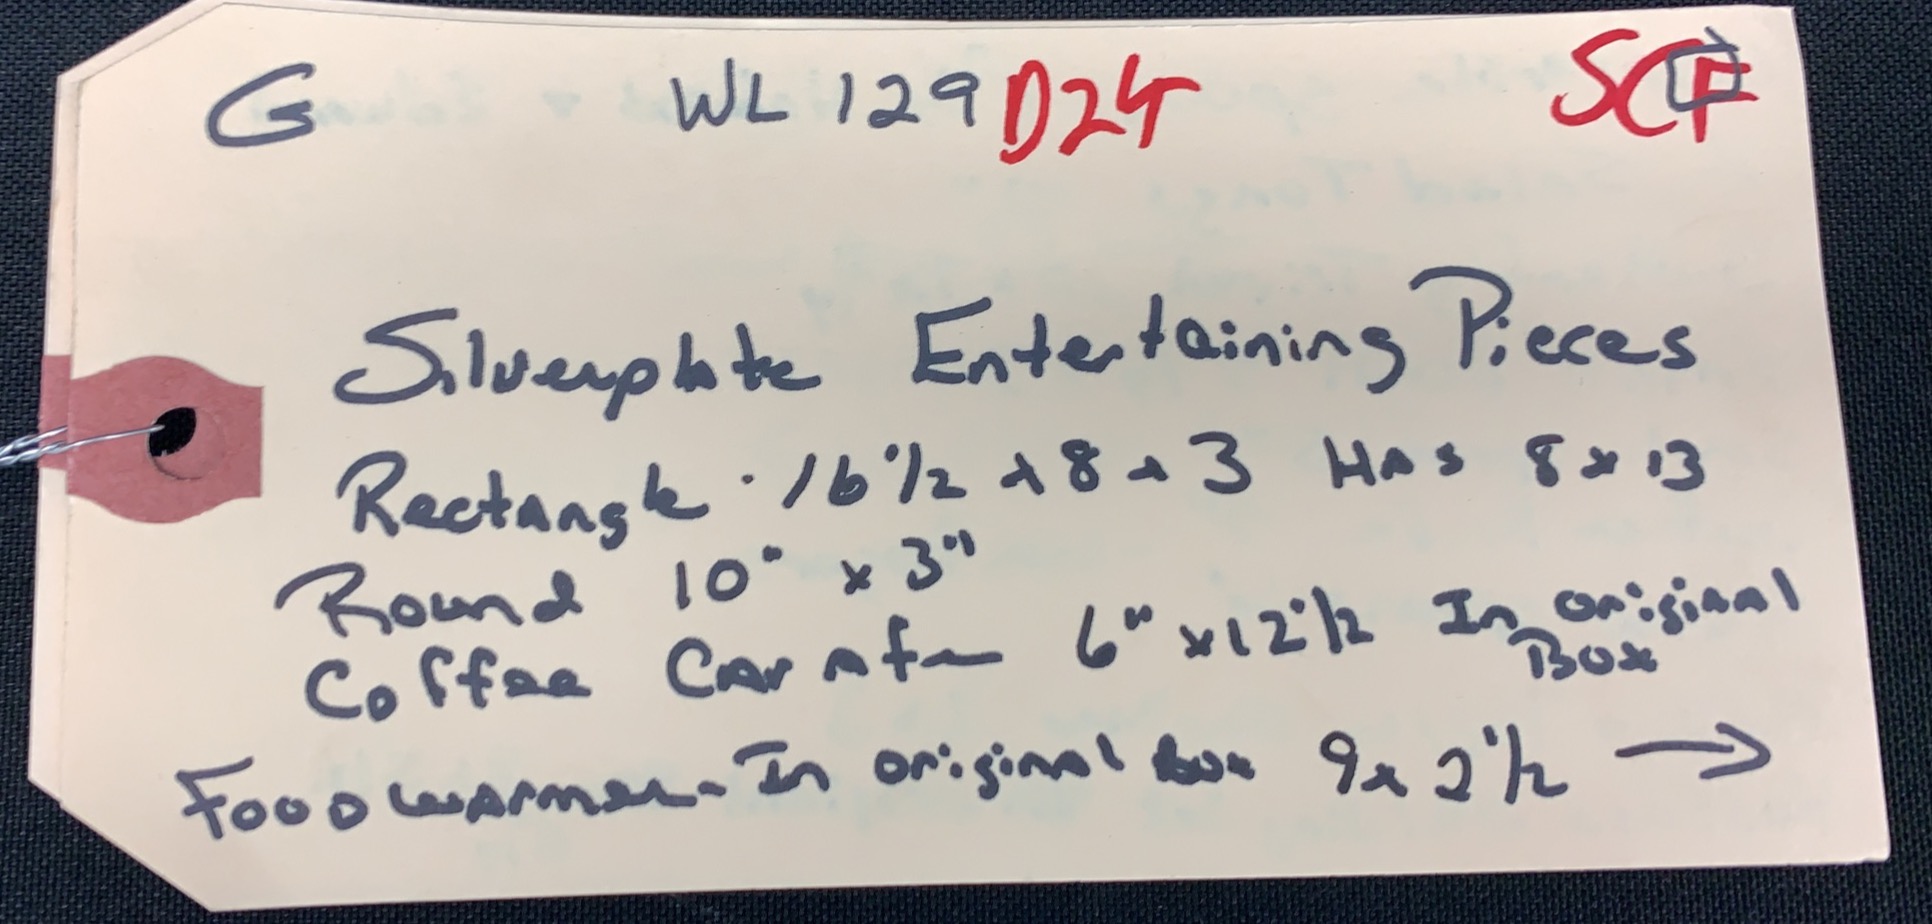 G WL 129 D24 SCF
Silverplate Entertaining Pieces
Rectangle · 16 1/2 x 8 x 3 Has 8 x 13
Round 10" x 3"
Coffee Carafe 6" x 12 1/2 In original
Box
Food warmer - In original box 9 x 2 1/2 →